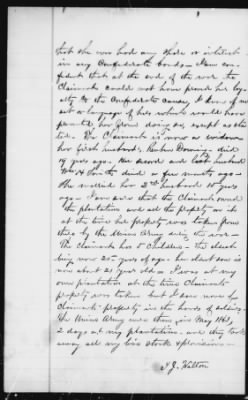 that she ever had any share or interest
in any Confederate bonds - I am con-
fident that at the end of the war the
Claimant could not have proved her loy-
alty to the Confederate cause, I know of no
act or language of hers which would have
prevented her from doing so, except
The Claimant is now a widow
her first husband, Downing - died
19 years ago - Her second and last husband
died a few months ago -
She married her 2nd husband 10 years
ago - I am sure that the Claimant owned
the plantation and all the property on it
at the time her property was taken from
there by the Union Army during the war -
The Claimant has 5 Children - the eldest
being now 25 years of age - her
now about 21 years old - I was at my
own plantation at the time Claimants
property was taken but I saw some of
Claimants property in the hands of soldiers
The Union Army were there in May 1863,
2 days at my plantation - and they took
away all my live stock & provisions -